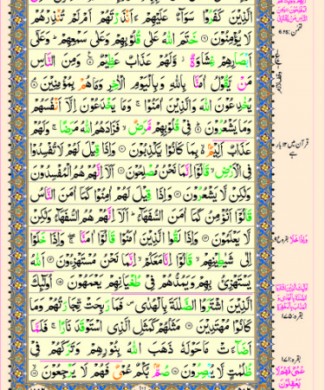 الَّذِيْنَ كَفَرُوْا سَوَآءٌ عَلَيْهِمْ ءَاَنْذَرْتَهُمْ اَمْ لَمْ تُنْذِرْهُمْ
لَا يُؤْمِنُوْنَ ۝ خَتَمَ اللّٰهُ عَلٰى قُلُوْبِهِمْ وَعَلٰى سَمْعِهِمْ ؕ وَعَلٰٓى
اَبْصَارِهِمْ غِشَاوَةٌ ؗ وَّلَهُمْ عَذَابٌ عَظِيْمٌ ۝ وَمِنَ النَّاسِ
مَنْ يَّقُوْلُ اٰمَنَّا بِاللّٰهِ وَبِالْيَوْمِ الْاٰخِرِ وَمَا هُمْ بِمُؤْمِنِيْنَ ۝
يُخٰدِعُوْنَ اللّٰهَ وَالَّذِيْنَ اٰمَنُوْا ۚ وَمَا يَخْدَعُوْنَ اِلَّآ اَنْفُسَهُمْ
وَمَا يَشْعُرُوْنَ ۝ فِيْ قُلُوْبِهِمْ مَّرَضٌ ۙ فَزَادَهُمُ اللّٰهُ مَرَضًا ۚ وَلَهُمْ
عَذَابٌ اَلِيْمٌۢ ۙ بِمَا كَانُوْا يَكْذِبُوْنَ ۝ وَاِذَا قِيْلَ لَهُمْ لَا تُفْسِدُوْا
فِي الْاَرْضِ ۙ قَالُوْٓا اِنَّمَا نَحْنُ مُصْلِحُوْنَ ۝ اَلَآ اِنَّهُمْ هُمُ الْمُفْسِدُوْنَ
وَلٰكِنْ لَّا يَشْعُرُوْنَ ۝ وَاِذَا قِيْلَ لَهُمْ اٰمِنُوْا كَمَآ اٰمَنَ النَّاسُ
قَالُوْٓا اَنُؤْمِنُ كَمَآ اٰمَنَ السُّفَهَآءُ ؕ اَلَآ اِنَّهُمْ هُمُ السُّفَهَآءُ وَلٰكِنْ
لَّا يَعْلَمُوْنَ ۝ وَاِذَا لَقُوا الَّذِيْنَ اٰمَنُوْا قَالُوْٓا اٰمَنَّا ۖۚ وَاِذَا خَلَوْا
اِلٰى شَيٰطِيْنِهِمْ ۙ قَالُوْٓا اِنَّا مَعَكُمْ ۙ اِنَّمَا نَحْنُ مُسْتَهْزِءُوْنَ ۝ اَللّٰهُ
يَسْتَهْزِئُ بِهِمْ وَيَمُدُّهُمْ فِيْ طُغْيَانِهِمْ يَعْمَهُوْنَ ۝ اُولٰٓئِكَ
الَّذِيْنَ اشْتَرَوُا الضَّلٰلَةَ بِالْهُدٰى ۪ فَمَا رَبِحَتْ تِّجَارَتُهُمْ وَمَا
كَانُوْا مُهْتَدِيْنَ ۝ مَثَلُهُمْ كَمَثَلِ الَّذِى اسْتَوْقَدَ نَارًا ۚ فَلَمَّآ
اَضَآءَتْ مَا حَوْلَهٗ ذَهَبَ اللّٰهُ بِنُوْرِهِمْ وَتَرَكَهُمْ فِيْ
ظُلُمٰتٍ لَّا يُبْصِرُوْنَ ۝ صُمٌّۢ بُكْمٌ عُمْيٌ فَهُمْ لَا يَرْجِعُوْنَ ۝